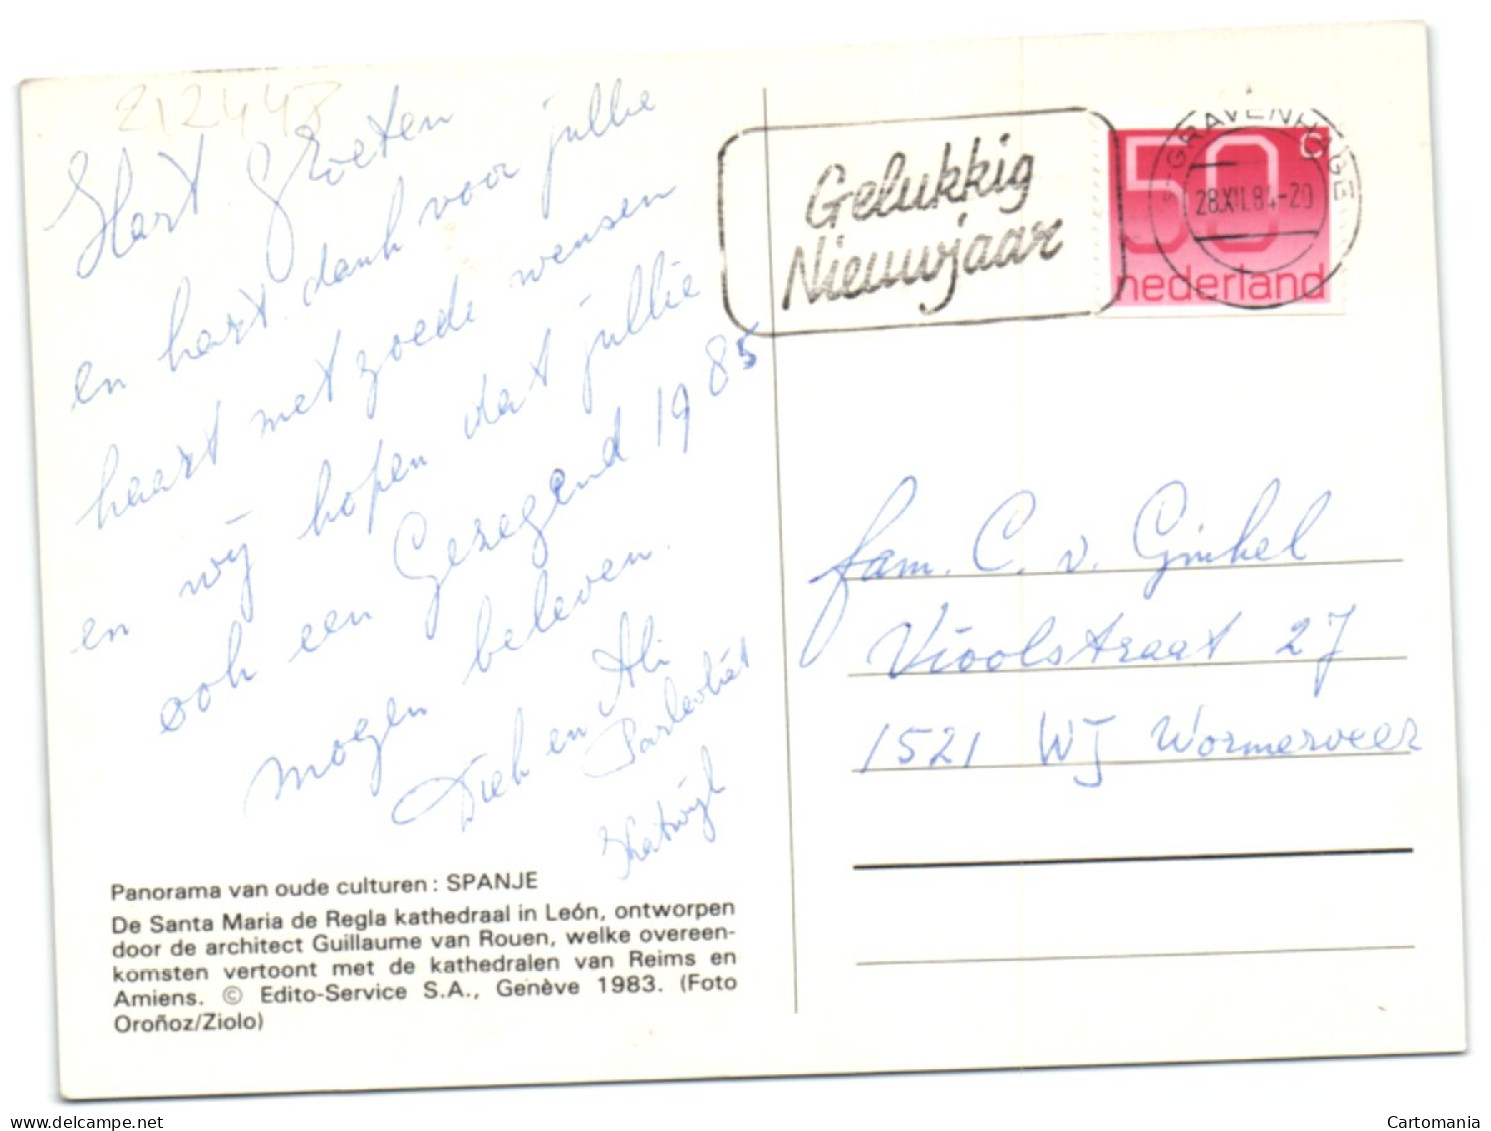 212448
Hart. Groeten
en hart. dank voor jullie
kaart met goede wensen
en wij hopen dat jullie
ook een Gezegend 1985
mogen beleven.
Diek en Ali
Parlevliet
Katwijk
Gelukkig
Nieuwjaar
'S-GRAVENHAGE
28.XII.84-20
50c
nederland
fam. C. v. Ginkel
Vioolstraat 27
1521 WJ Wormerveer
Panorama van oude culturen : SPANJE
De Santa Maria de Regla kathedraal in León, ontworpen
door de architect Guillaume van Rouen, welke overeen-
komsten vertoont met de kathedralen van Reims en
Amiens. © Edito-Service S.A., Genève 1983. (Foto
Oroñoz/Ziolo)
delcampe.net
Cartomania